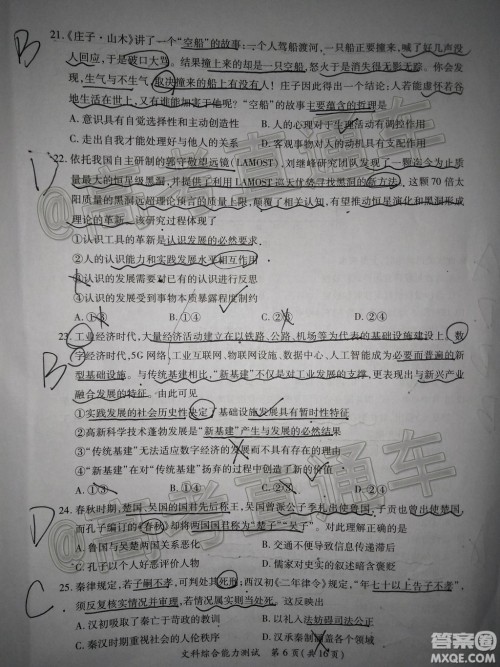 B
21.《庄子·山木》讲了一个“空船”的故事：一个人驾船渡河，一只船正要撞来，喊了好几声没
人回应，于是破口大骂。结果撞上来的却是一只空船，怒火于是消失得无影无踪。你会发
现，生气与不生气，取决撞来的船上有没有人！庄子因此得出一个结论：人若能虚怀若谷
地生活在世上，又有谁能加害于他呢？“空船”的故事主要蕴含的哲理是
A. 意识具有自觉选择性和主动创造性
B. 人的心理对于生理活动有调控作用
C. 走出自我才能处理好与他人的关系
D. 客观事物对人的主观动机具有制约性
D
22. 依托我国自主研制的郭守敬望远镜(LAMOST)，刘继峰研究团队发现了一颗迄今为止
质量最大的恒星级黑洞，并提供了利用 LAMOST 巡天优势寻找黑洞的新方法。这颗 70 倍太
阳质量的黑洞远超理论预言的质量上限，颠覆了相关认知，有望推动恒星演化和黑洞形成
理论的革新。该研究过程体现了
①认识工具的革新是认识发展的必然要求
②人的认识能力和实践发展水平相互作用
③认识的发展需要对已有的认识进行反思
④认识的发展受到事物本质暴露程度制约
A. ①③
B. ①④
C. ②③
D. ②④
B
23. 工业经济时代，大量经济活动建立在以铁路、公路、机场等为代表的基础设施建设上。数
字经济时代，5G 网络、工业互联网、物联网、数据中心、人工智能成为必要而普遍的新
型基础设施。与传统基建相比，“新基建”不仅是对工业发展的支撑，更表现出与新兴产业
融合发展的特征。由此可见
①实践发展的社会历史性决定了基础设施发展具有暂时性特征
②高新科学技术蓬勃发展是“新基建”产生与发展的必然结果
③“传统基建”无法适应数字经济的发展而不具有存在的理由
④“新基建”在对“传统基建”扬弃的过程中创造了新的价值
A. ①③
B. ①④
C. ②③
D. ②④
D
24. 春秋时期，楚国、吴国的国君先后称王，鲁国曾派公子季札出使鲁国，子贡也曾出使吴国，
而孔子编订的《春秋》却将两国国君称为“楚子”“吴子”。对此理解正确的是
A. 鲁国与吴楚两国关系恶化
B. 交通不便导致信息传递滞后
C. 孔子以个人好恶评价人物
D. 儒家思想影响历史叙述褒贬
C
25. 秦律规定，若子嗣不孝，可判处其死刑；西汉初《二年律令》规定，“年七十以上告子不孝”，
须反复核实情况并审理，若情况属实则当处死。这反映出
A. 汉初吸取了秦亡于苛政的教训
B. 以礼入法妨碍司法公正
C. 汉初时更重视社会人伦秩序
D. 汉承秦制涵盖各个领域
文科综合能力测试 第 6 页(共 16 页)
@高考直通车
答案圈
MXQE.COM